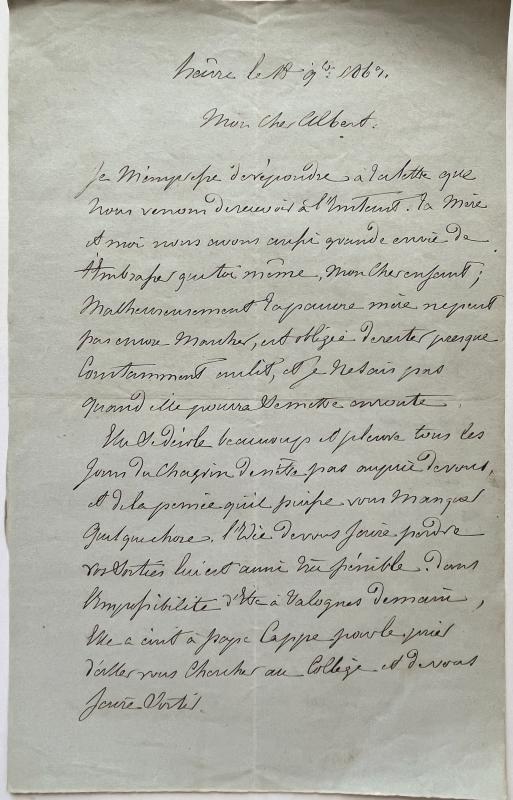 havre le 18 9bre 1869.
Mon cher Albert.
Je M'empresse de répondre à ta lettre que
nous venons de recevoir à l'Instant. ta Mère
et moi nous avons aussi grande envie de
t'Embrasser que toi même, Mon cher enfant ;
Malheureusement ta pauvre mère ne peut
pas encore Marcher, est obligée de rester presque
Constamment au lit, et je ne sais pas
quand elle pourra se mettre en route.
Elle se désole beaucoup et pleure tous les
jours du chagrin de n'être pas auprès de vous,
et de la pensée qu'il puisse vous Manquer
quelque chose. l'Idée de vous faire perdre
vos sorties lui est aussi très pénible. Dans
l'impossibilité d'Etre à Valognes demain,
Elle a écrit à papa Cappe pour le prier
d'aller vous Chercher au Collège et de vous
faire sortir.